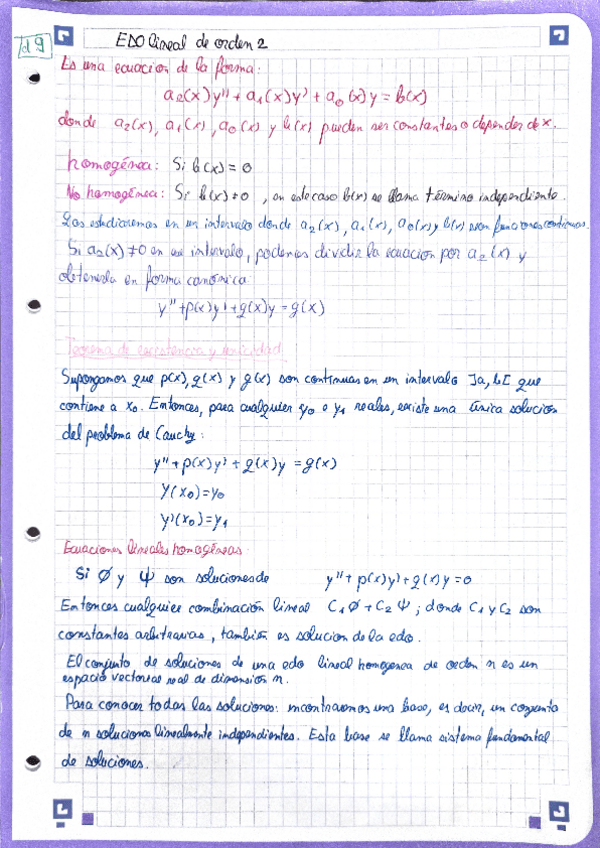 d9
EDO lineal de orden 2
Es una ecuacion de la forma:
a₂(x)y'' + a₁(x)y' + a₀(x)y = b(x)
donde a₂(x), a₁(x), a₀(x) y b(x) pueden ser constantes o depender de x.
homogénea: Si b(x) = 0
No homogénea: Si b(x) ≠ 0, en este caso b(x) se llama término independiente.
Las estudiaremos en un intervalo donde a₂(x), a₁(x), a₀(x) y b(x) sean funciones continuas.
Si a₂(x) ≠ 0 en un intervalo, podemos dividir la ecuacion por a₂(x) y
obtenerla en forma canónica:
y'' + p(x)y' + q(x)y = g(x)
Teorema de existencia y unicidad
Supongamos que p(x), q(x) y g(x) son continuas en un intervalo ]a, b[ que
contiene a x₀. Entonces, para cualquier y₀ e y₁ reales, existe una única solución
del problema de Cauchy:
y'' + p(x)y' + q(x)y = g(x)
y(x₀) = y₀
y'(x₀) = y₁
Ecuaciones lineales homogéneas
Si Ø y Ψ son soluciones de y'' + p(x)y' + q(x)y = 0
Entonces cualquier combinación lineal C₁Ø + C₂Ψ; donde C₁ y C₂ son
constantes arbitrarias, también es solucion de la edo.
El conjunto de soluciones de una edo lineal homogenea de orden n es un
espacio vectorial real de dimensión n.
Para conocer todas las soluciones: encontraremos una base, es decir, un conjunto
de n soluciones linealmente independientes. Esta base se llama sistema fundamental
de soluciones.